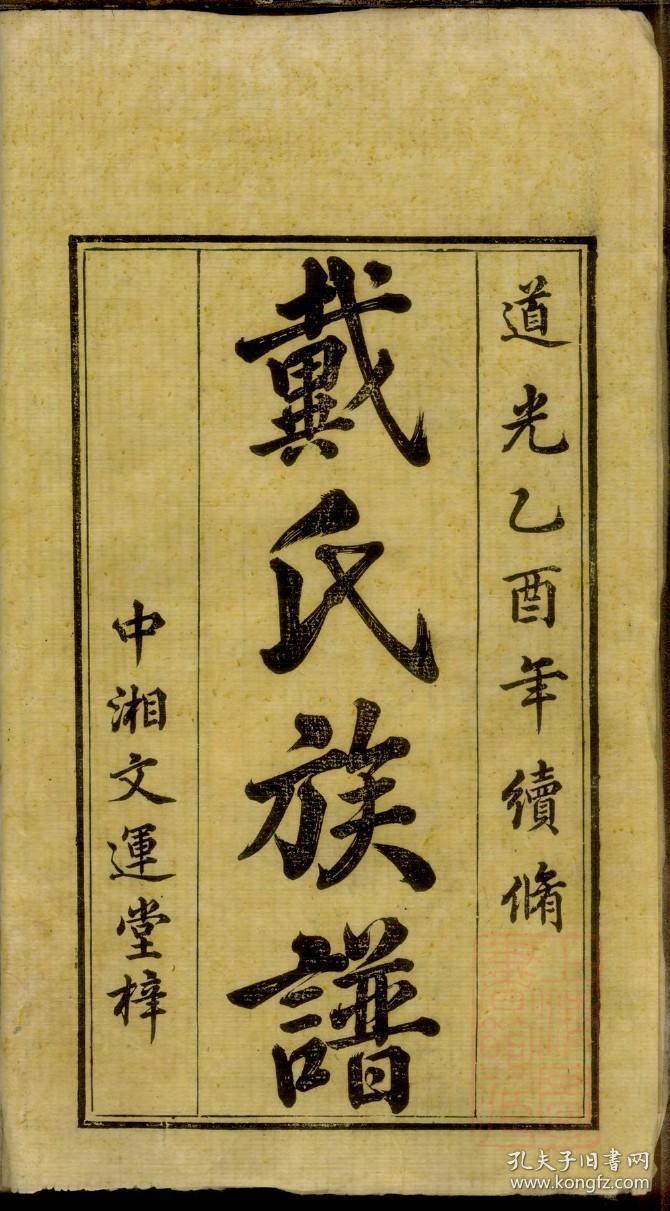 道光乙酉年續脩
戴氏族譜
中湘文運堂梓
孔夫子旧书网
www.kongfz.com